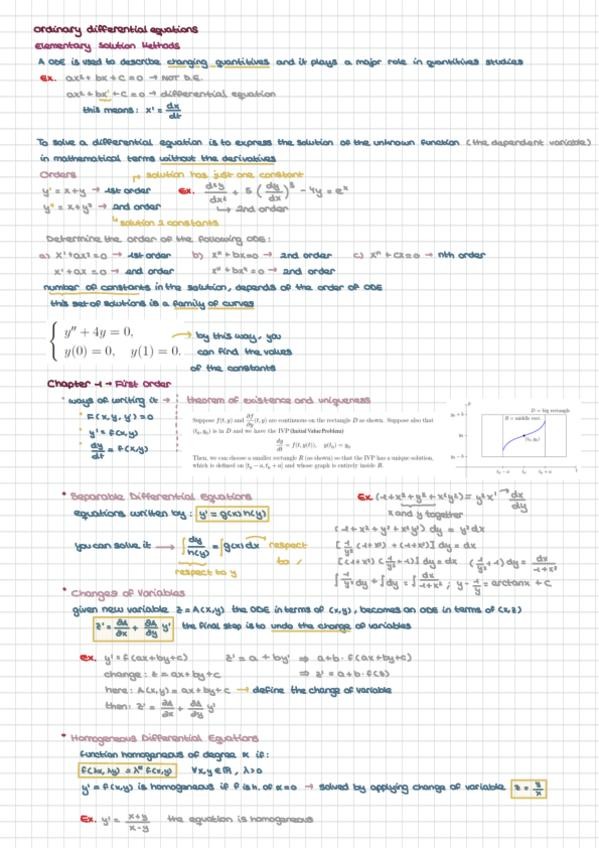 ordinary differential equations
Elementary Solution Methods
A ODE is used to describe changing quantitives and it plays a major role in quantitives studies
Ex. ax² + bx + c = 0 → NOT D.E.
ax² + bx' + c = 0 → differential equation
this means: x' = dx/dt
To solve a differential equation is to express the solution of the unknown function (the dependent variable)
in mathematical terms without the derivatives
Orders
solution has just one constant
y' = x+y → 1st order
Ex. d²y/dx² + 5 (dy/dx)³ - 4y = eˣ
→ 2nd order
y'' = x+y² → 2nd order
solution 2 constants
Determine the order of the following ODE:
a) x'+ax²=0 → 1st order b) x''+bx=0 → 2nd order c) xⁿ+cx=0 → nth order
x'+ax=0 → 2nd order x''+bx²=0 → 2nd order
number of constants in the solution, depends of the order of ODE
this set of solutions is a family of curves
y'' + 4y = 0,
y(0) = 0, y(1) = 0.
by this way, you
can find the values
of the constants
Chapter 1 → First order
ways of writing it
F(x,y,y')=0
y'=f(x,y)
dy/dt = f(x,y)
theorem of existence and uniqueness
Suppose f(t, y) and ∂f/∂y (t, y) are continuous on the rectangle D as shown. Suppose also that
(t₀, y₀) is in D and we have the IVP (Initial Value Problem)
dy/dt = f(t, y(t)), y(t₀) = y₀
Then, we can choose a smaller rectangle R (as shown) so that the IVP has a unique solution,
which is defined on [t₀ − a, t₀ + a] and whose graph is entirely inside R.
D = big rectangle
R = middle rect.
y₀ + b
y₀
y₀ − b
(t₀, y₀)
t₀ − a t₀ t₀ + a
Separable Differential Equations
equations written by: y' = g(x) h(y)
you can solve it → ∫ dy/h(y) = ∫ g(x) dx respect
to
respect to y
Ex. (-1+x²+y²+x²y²) = y²x' dx/dy
x and y together
(-1+x²+y²+x²y²) dy = y² dx
[1/y² (-1+x²) + (-1+x²)] dy = dx
[(-1+x²) (1/y² +1)] dy = dx (1/y² +1) dy = dx/-1+x²
∫ 1/y² dy + ∫ dy = ∫ dx/-1+x² ; y - 1/y = arctanx + C
Changes of Variables
given new variable z = A(x,y) the ODE in terms of (x,y), becomes an ODE in terms of (x,z)
z' = ∂A/∂x + ∂A/∂y y' the final step is to undo the change of variables
ex. y' = f(ax+by+c) z' = a + by' ⇒ a+b·f(ax+by+c)
change: z = ax+by+c ⇒ z' = a+b·f(z)
here: A(x,y) = ax+by+c → define the change of variable
then: z' = ∂A/∂x + ∂A/∂y y'
Homogeneous Differential Equations
function homogeneous of degree α if:
f(λx, λy) = λᵅ f(x,y) ∀x,y∈ℝ, λ>0
y' = f(x,y) is homogeneous if f is h. of α=0 → solved by applying change of variable z = y/x
Ex. y' = x+y/x-y the equation is homogeneous